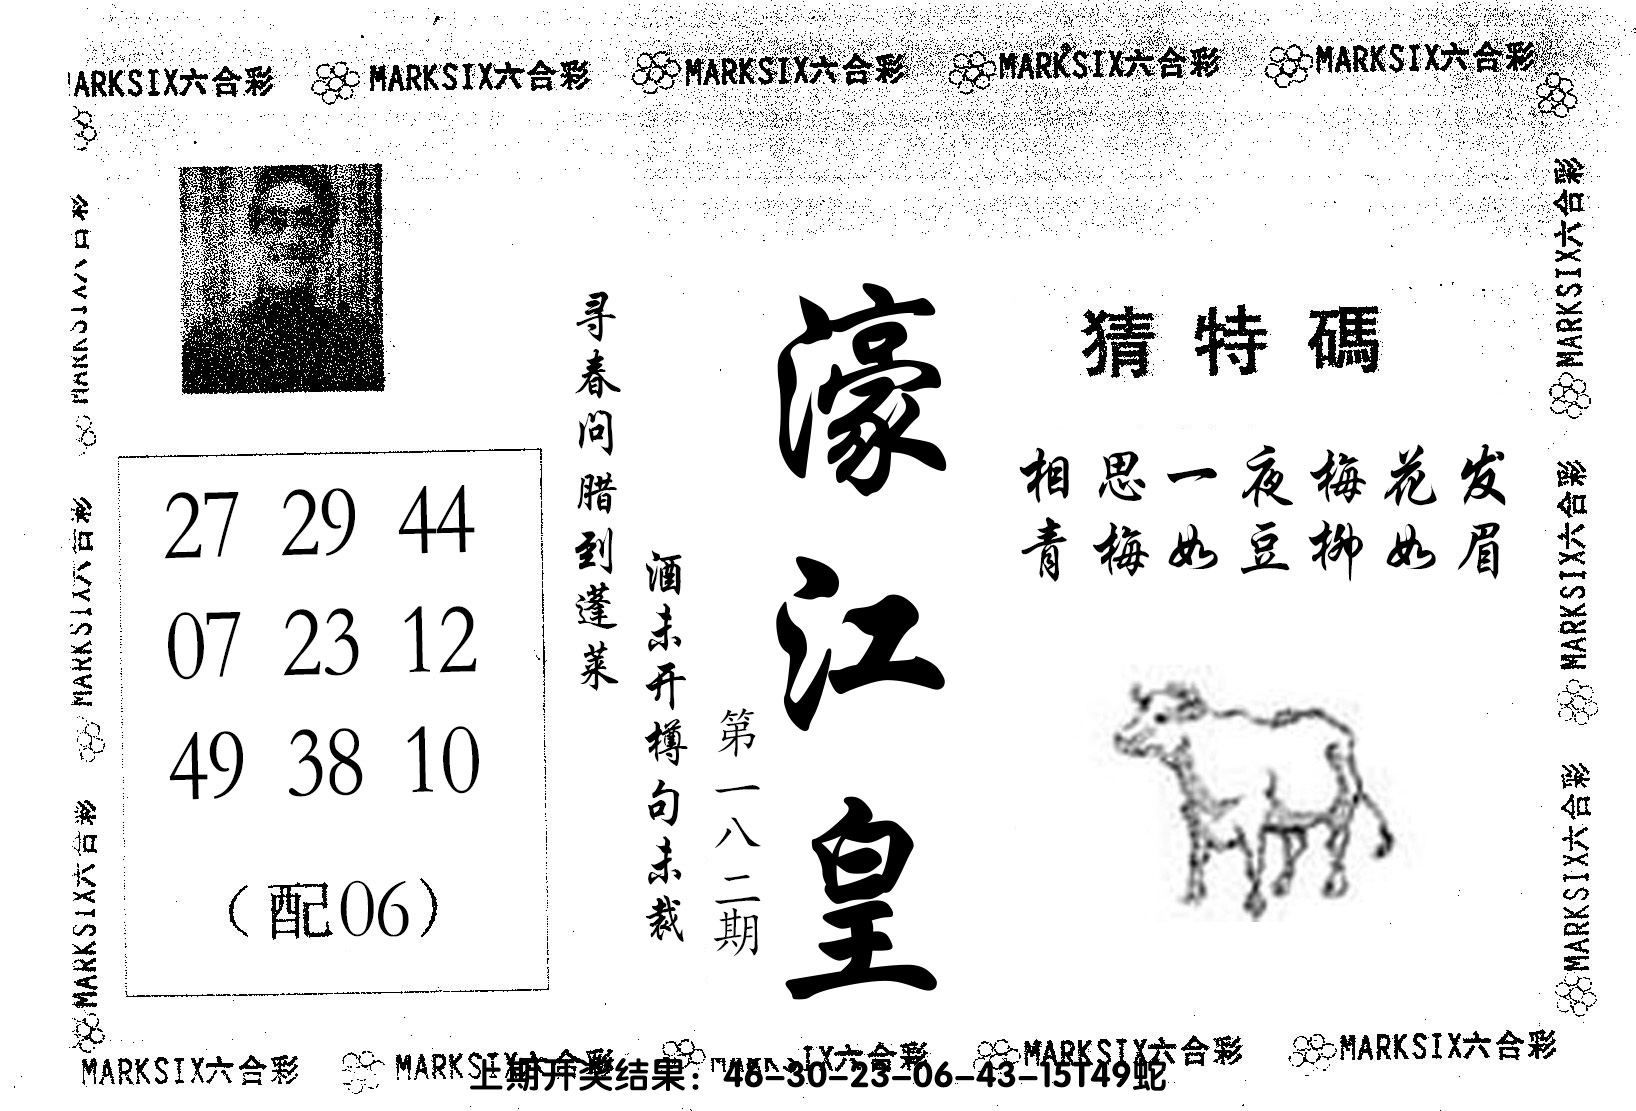 MARKSIX六合彩 MARKSIX六合彩 MARKSIX六合彩 MARKSIX六合彩 MARKSIX六合彩
MARKSIX六合彩
MARKSIX六合彩
MARKSIX六合彩
27 29 44
07 23 12
49 38 10
(配06)
寻春问腊到蓬莱
酒未开樽句未裁
第一八二期
濠江皇
猜特碼
相思一夜梅花发
青梅如豆柳如眉
MARKSIX六合彩
MARKSIX六合彩
MARKSIX六合彩
MARKSIX六合彩 MARKSIX六合彩 MARKSIX六合彩 MARKSIX六合彩 MARKSIX六合彩
上期开奖结果：46-30-23-06-43-15T49蛇